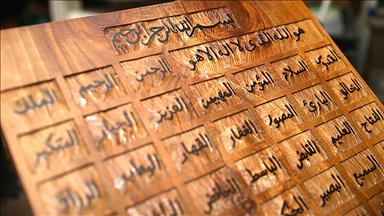 بسم الله الرحمن الرحيم
هو الله الذي لا اله الا هو
الرحمن الرحيم الملك
القدوس السلام المؤمن المهيمن العزيز الجبار المتكبر
الخالق البارئ المصور الغفار القهار الوهاب الرزاق
الفتاح العليم القابض الباسط الخافض
السميع البصير